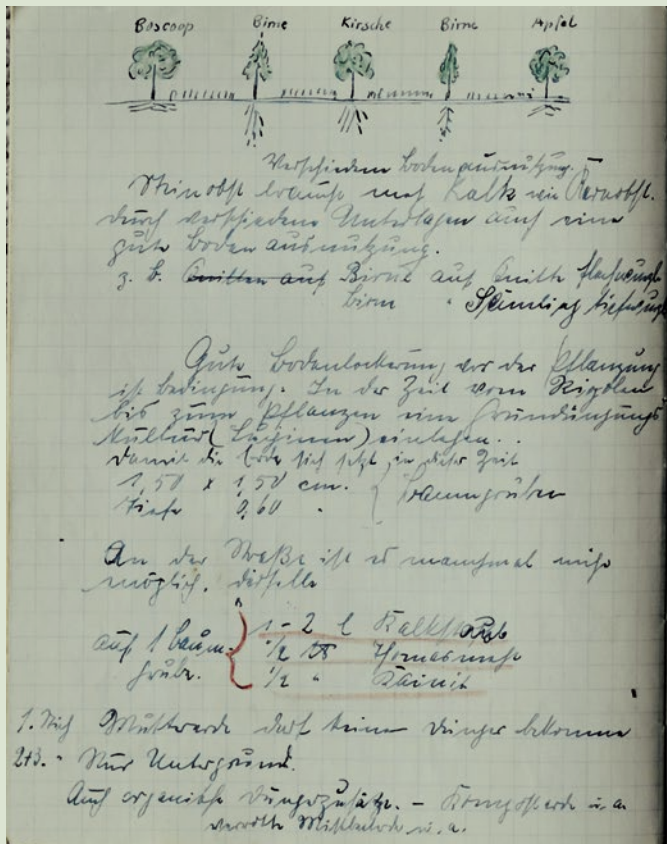 Boscoop Birne Kirsche Birne Apfel
Verschiedene Bodenausnutzung. –
Steinobst braucht mehr Kalk wie Kernobst.
durch verschiedene Unterlagen auch eine
gute Bodenausnutzung.
z. B. Quitten auf Birne auf Quitte flachwurzl
Birne " Sämling tiefwurzl
Gute Bodenlockerung vor der Pflanzung
ist Bedingung. In der Zeit vom Rigolen
bis zum Pflanzen eine Gründüngungs
Kultur (Lupinen) einlegen..
damit die Erde sich setzt in dieser Zeit
1,50 x 1,50 cm. } Baumgruben
Tiefe 0,60 "
An der Straße ist es manchmal nicht
möglich. dieselbe
auf 1 Baum- { 1 - 2 l Kalkstaub
grube. 1/2 Thomasmehl
1/2 " Kainit
1. Stich Mutterde darf keinen Dünger bekomme
2+3. " Nur Untergrund.
Auch organische Düngezusätze. – Komposterde u. a.
verrottete u. a.